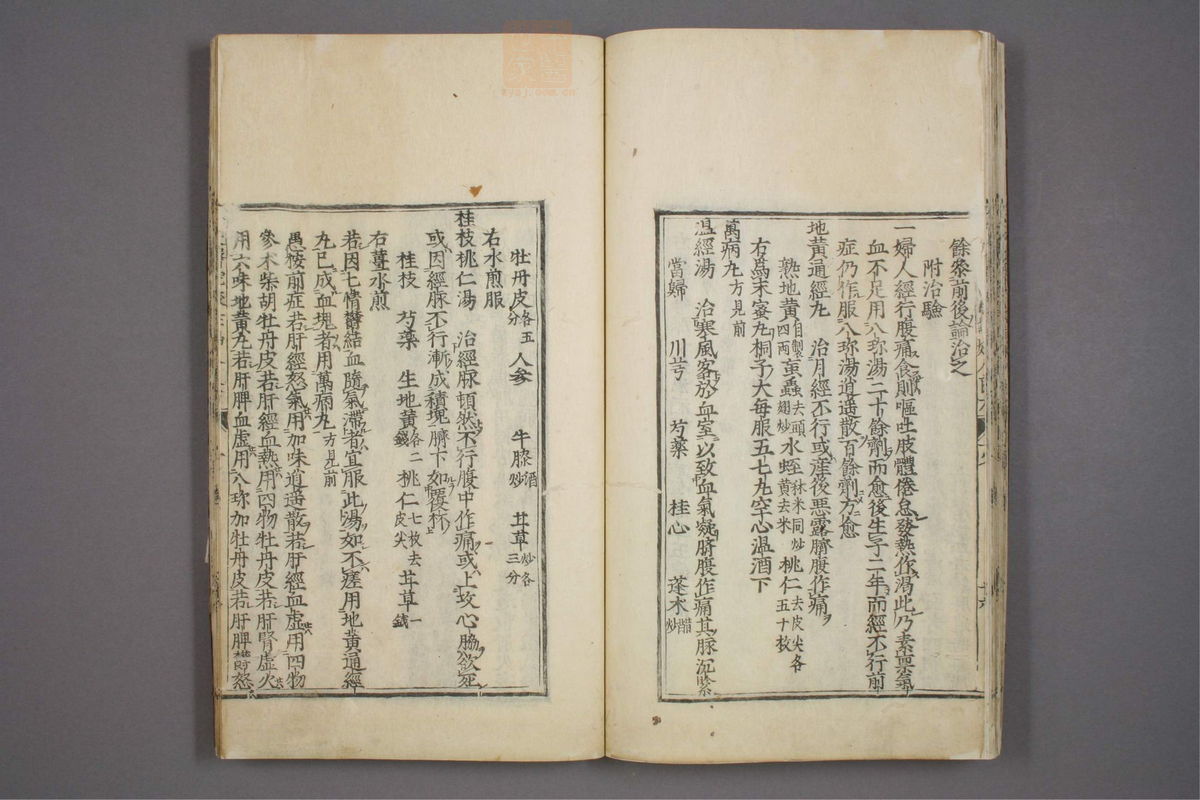 餘參前後論治之
附治驗
一婦人經行腹痛食則嘔吐肢體倦怠發熱作渴此乃素禀氣
血不足用八珎湯二十餘劑而愈後生子二年而經不行前
症仍作服八珎湯逍遥散百餘劑方愈
地黄通經丸 治月經不行或産後悪露臍腹作痛
熟地黄自製四兩 䖟蟲去頭翅炒 水蛭秫米同炒黄去米 桃仁去皮尖各五十枚
右爲末蜜丸桐子大每服五七丸空心温酒下
萬病丸方見前
温經湯 治寒風客於血室以致血氣凝臍腹作痛其脉沉緊
當歸 川芎 芍藥 桂心 蓬朮醋炒
牡丹皮各五分 人參 牛膝酒炒 甘草炒各三分
右水煎服
桂枝桃仁湯 治經脉頓然不行腹中作痛或上攻心脇欲死
或因經脉不行漸成積塊臍下如覆杯
桂枝 芍藥 生地黄各二錢 桃仁七枚去皮尖 甘草一錢
右薑水煎
若因七情鬱結血隨氣滯者宜服此湯如不瘥用地黄通經
丸已成血塊者用萬病丸方見前
愚按前症若肝經怒氣用加味逍遥散若肝經血虚用四物
參朮柴胡牡丹皮若肝經血熱用四物牡丹皮若肝腎虚火
用六味地黄丸若肝脾血虚用八珎加牡丹皮若肝脾鬱怒